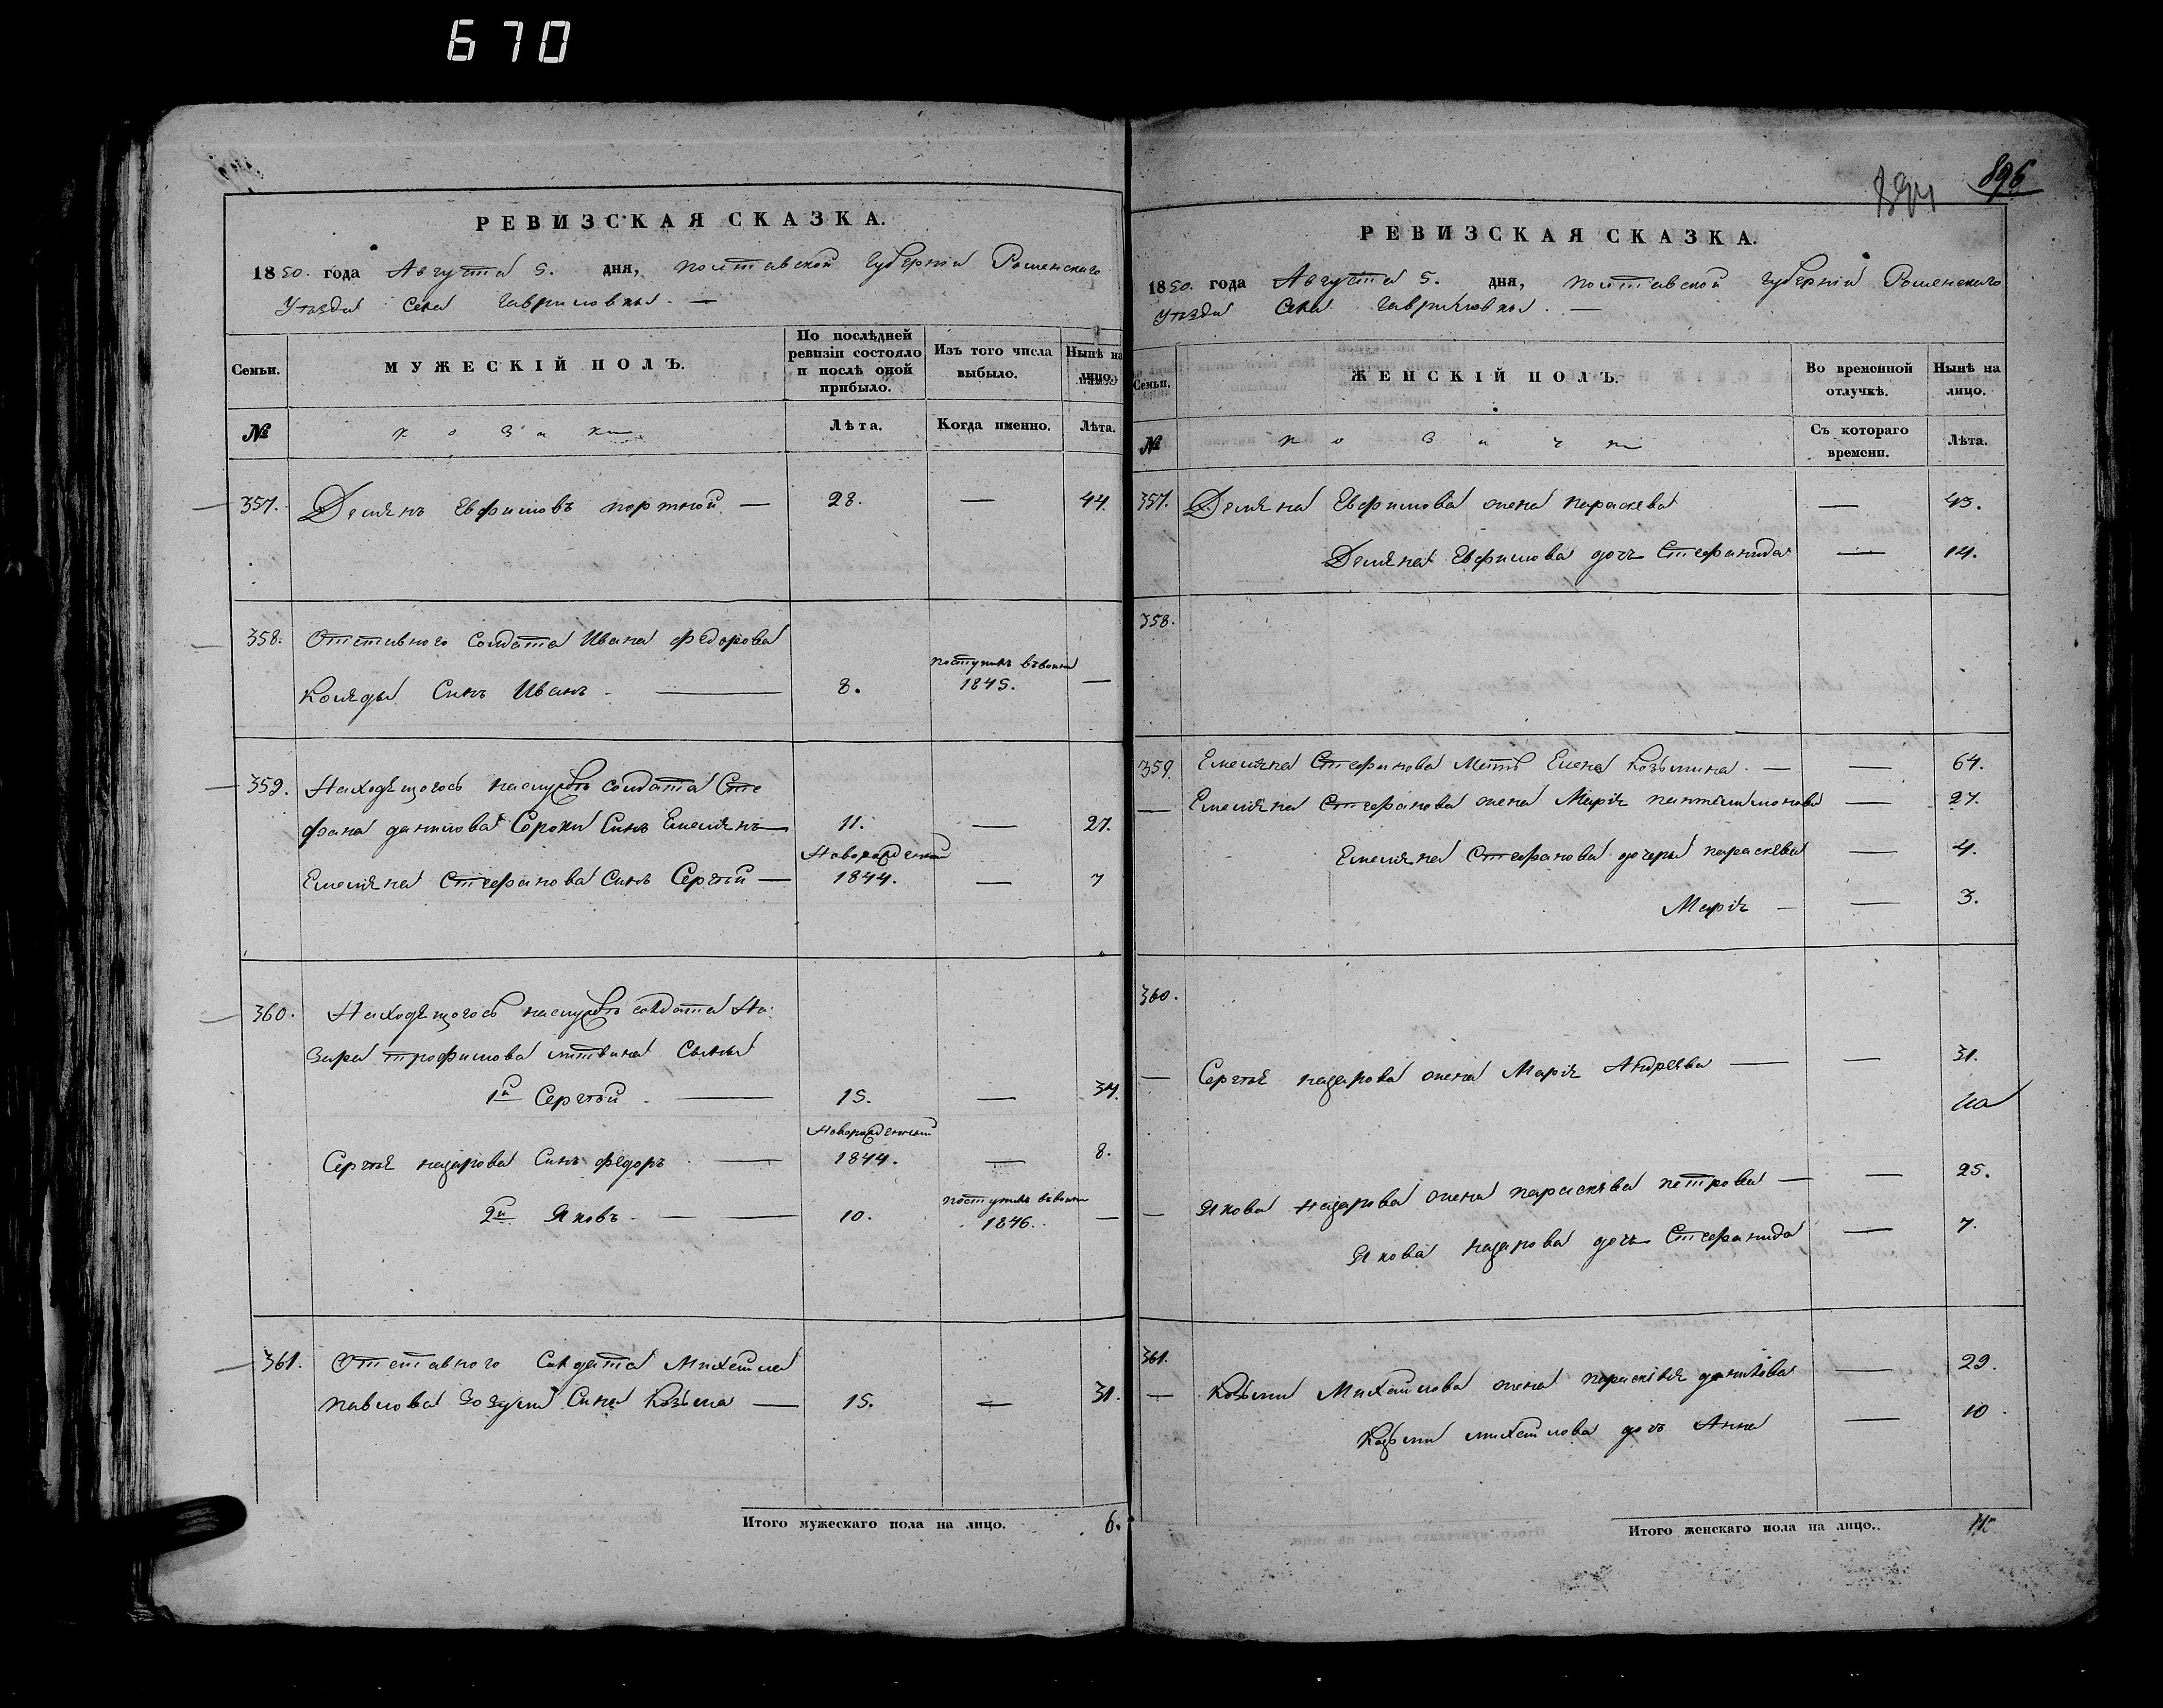 670
896
894
РЕВИЗСКАЯ СКАЗКА.
1850. года Августа 5. дня, Полтавской Губерніи Роменскаго
Уѣзда Села Гавриловки. —
Семьи.
МУЖЕСКІЙ ПОЛЪ.
По послѣдней ревизіи состояло и послѣ оной прибыло.
Изъ того числа выбыло.
Нынѣ на лицо.
№
козаки
Лѣта.
Когда именно.
Лѣта.
357. Демянъ Евфимовъ портной — 28. — 44.
358. Отставного Солдата Ивана Федорова
Коляды Синъ Иванъ — 8. поступилъ 1845. —
359. Находящогось наслужбѣ солдата Сте
фана данилова Сороки Синъ Емелянъ — 11. — 27.
Емеляна Стефанова Синъ Сергѣй — Новорожденный 1844. — 7
360. Находящогось наслужбѣ солдата На
зара трофимова литвина Сыны
1й Сергѣй — 15. — 31.
Сергѣя назарова Синъ федоръ — Новорожденный 1844. — 8.
2й Яковъ — 10. поступилъ 1846. —
361. Отставного Солдата Михайла
павлова Зозули Сина Козьма — 15. — 31.
Итого мужескаго пола на лицо. 6.
РЕВИЗСКАЯ СКАЗКА.
1850. года Августа 5. дня, Полтавской Губерніи Роменскаго
Уѣзда Села Гавриловки. —
Семьи.
ЖЕНСКІЙ ПОЛЪ.
Во временной отлучкѣ.
Нынѣ на лицо.
№
козачки
Съ котораго времени.
Лѣта.
357. Демяна Евфимова жена параскева — 43.
Демяна Евфимова дочь Стефанида — 14.
358.
359. Емеляна Стефанова Мать Елена Козьмина — — 64.
— Емеляна Стефанова жена Марія пантелимонова — 27.
Емеляна Стефанова дочери параскева — 4.
Марія — — 3.
360.
— Сергѣя назарова жена Марія Андреева — — 31.
— Якова Назарова жена параскева петрова — — 25.
Якова назарова дочь Стефанида — 7.
361.
— Козьми Михайлова жена параскевія данилова — 29.
Козьми михайлова дочь Анна — 10
Итого женскаго пола на лицо.